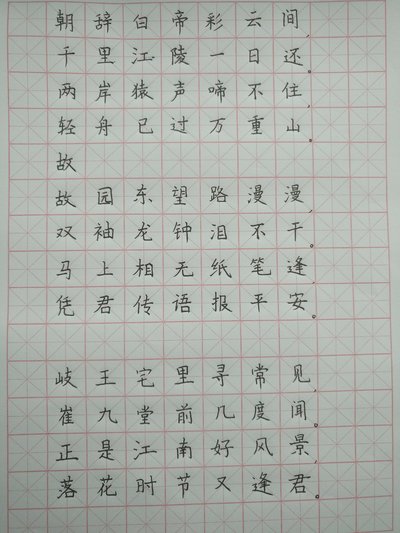 朝辞白帝彩云间,
千里江陵一日还。
两岸猿声啼不住,
轻舟已过万重山。
故
故园东望路漫漫,
双袖龙钟泪不干。
马上相无纸笔逢
凭君传语报平安。
岐王宅里寻常见,
崔九堂前几度闻。
正是江南好风景,
落花时节又逢君。